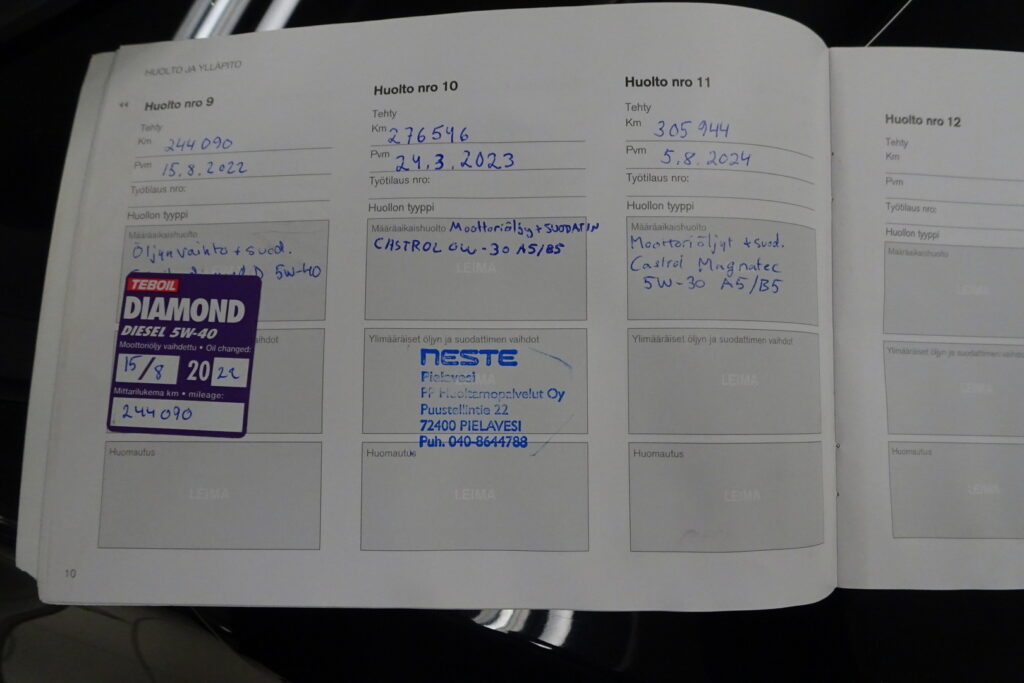 HUOLTO JA YLLÄPITO
Huolto nro 9
Tehty
Km 244 090
Pvm 15.8.2022
Työtilaus nro:
Huollon tyyppi
Määräaikaishuolto
Öljynvaihto + suod.
5W-40
TEBOIL
DIAMOND
DIESEL 5W-40
Moottoriöljy vaihdettu • Oil changed:
15/8 20 22
Mittarilukema km • mileage:
244 090
vaihdot
Huomautus
LEIMA
10
Huolto nro 10
Tehty
Km 276546
Pvm 24.3.2023
Työtilaus nro:
Huollon tyyppi
Määräaikaishuolto Moottoriöljy + SUODATIN
CASTROL 0W-30 A5/B5
LEIMA
Ylimääräiset öljyn ja suodattimen vaihdot
NESTE
Pielavesi
PP Huoltamopalvelut Oy
Puustellintie 22
72400 PIELAVESI
Puh. 040-8644788
Huomautus
LEIMA
Huolto nro 11
Tehty
Km 305 944
Pvm 5.8.2024
Työtilaus nro:
Huollon tyyppi
Määräaikaishuolto
Moottoriöljyt + suod.
Castrol Magnatec
5W-30 A5/B5
Ylimääräiset öljyn ja suodattimen vaihdot
LEIMA
Huomautus
LEIMA
Huolto nro 12
Tehty
Km
Pvm
Työtilaus nro:
Huollon tyyppi
Määräaikaishuolto
LEIMA
Ylimääräiset öljyn ja suodattimen vaihdot
LEIMA
Huomautus
LEIMA